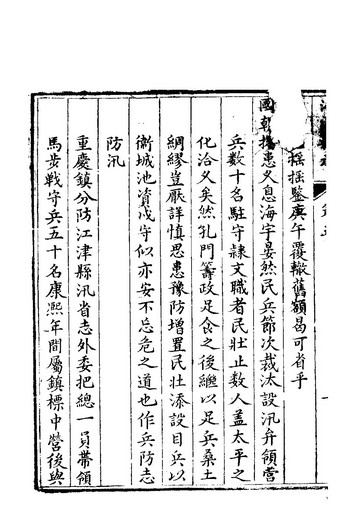 搖搖鑒庚午覆轍舊額曷可省乎
國朝患乂息海宇晏然民兵節次裁汰設汛弁領營
兵數十名駐守隷文職者民壯止數人蓋太平之
化洽乂矣然孔門籌政足食之後繼以足兵桑土
綢繆豈厭詳慎思患豫防增置民壯添設目兵以
衞城池資戍守似亦安不忘危之道也作兵防志
防汛
重慶鎮分防江津縣汛省志外委把總一員帶領
馬步戰守兵五十名康熙年間屬鎮標中營後與